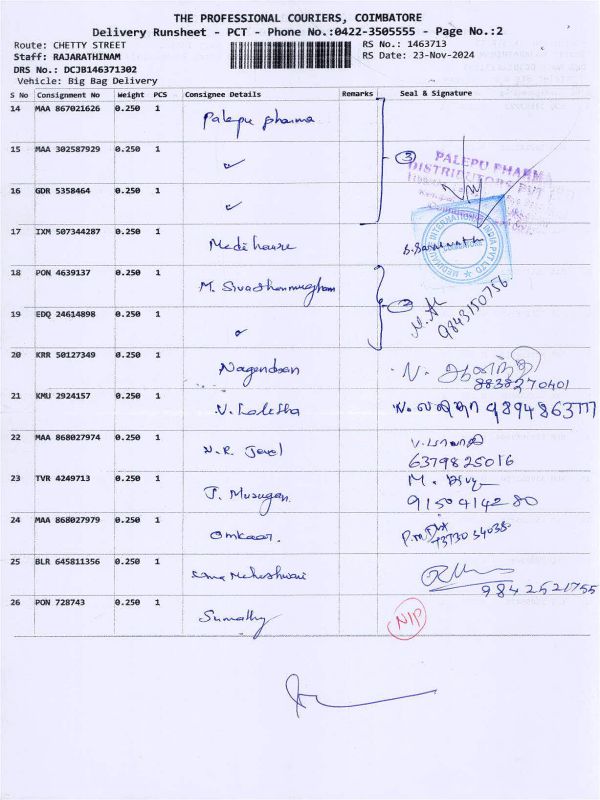 THE PROFESSIONAL COURIERS, COIMBATORE
Delivery Runsheet - PCT - Phone No.:0422-3505555 - Page No.:2
Route: CHETTY STREET RS No.: 1463713
Staff: RAJARATHINAM RS Date: 23-Nov-2024
DRS No.: DCJB146371302
Vehicle: Big Bag Delivery
S No Consignment No Weight PCS Consignee Details Remarks Seal & Signature
14 MAA 867021626 0.250 1 Palepu pharma
15 MAA 302587929 0.250 1 ✓ 3 PALEPU PHARMA
DISTRIBUTORS PVT LTD
16 GDR 5358464 0.250 1 ✓
17 IXM 507344287 0.250 1 Medi house
MEDIMAUX INTERNATIONAL INDIA PVT LTD
COIMBATORE
18 PON 4639137 0.250 1 M. Sivashanmugham 2
9843150756
19 EDQ 24614898 0.250 1 ✓
20 KRR 50127349 0.250 1 Nagendran N. ஆனந்தி
8838270401
21 KMU 2924157 0.250 1 V. Lalitha வ. லலிதா 9894863777
22 MAA 868027974 0.250 1 N.R. Jewel
6379825016
23 TVR 4249713 0.250 1 P. Murugan M.
9150414280
24 MAA 868027979 0.250 1 Omkaar.
25 BLR 645811356 0.250 1 Uma Maheshwari
9842521755
26 PON 728743 0.250 1 Sumathy N/P